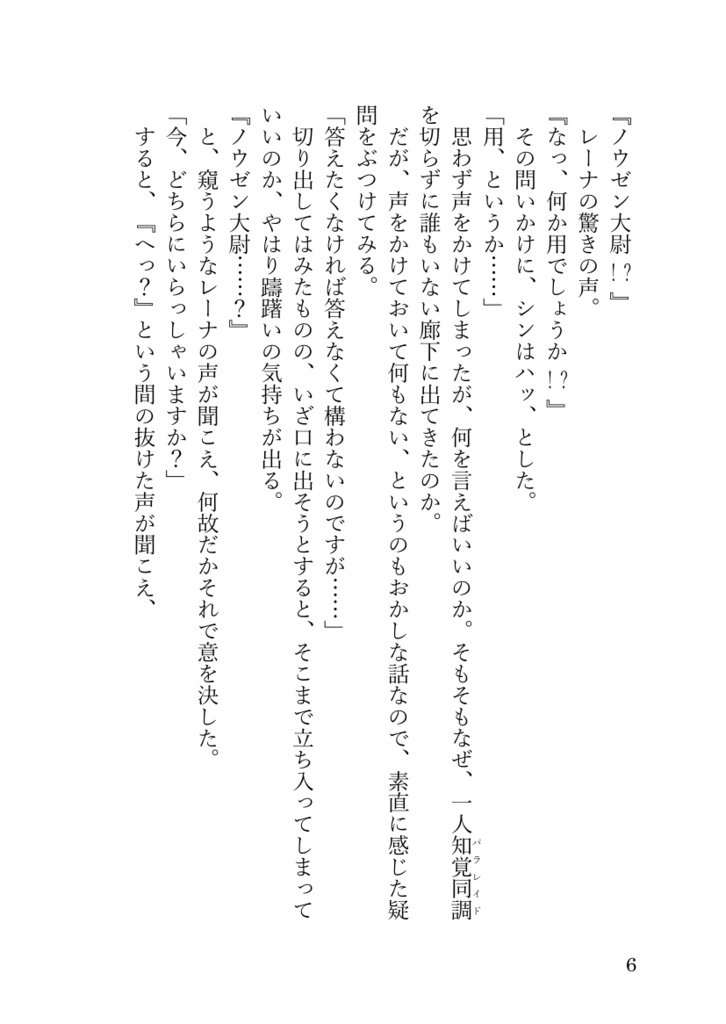 『ノウゼン大尉!?』
　レーナの驚きの声。
『なっ、何か用でしょうか!?』
　その問いかけに、シンはハッ、とした。
「用、というか……」
　思わず声をかけてしまったが、何を言えばいいのか。そもそもなぜ、一人知覚同調
パラレイド
を切らずに誰もいない廊下に出てきたのか。
　だが、声をかけておいて何もない、というのもおかしな話なので、素直に感じた疑
問をぶつけてみる。
「答えたくなければ答えなくて構わないのですが……」
　切り出してはみたものの、いざ口に出そうとすると、そこまで立ち入ってしまって
いいのか、やはり躊躇いの気持ちが出る。
『ノウゼン大尉……？』
　と、窺うようなレーナの声が聞こえ、何故だかそれで意を決した。
「今、どちらにいらっしゃいますか？」
　すると、『へっ？』という間の抜けた声が聞こえ、
6